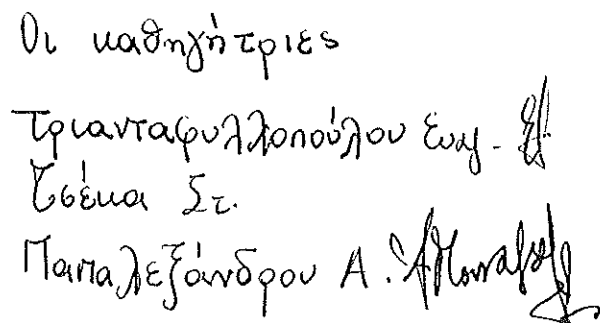 Οι καθηγήτριες
Τριανταφυλλοπούλου Ευαγ.
Τσέκα Στ.
Παπαλεξάνδρου Α.